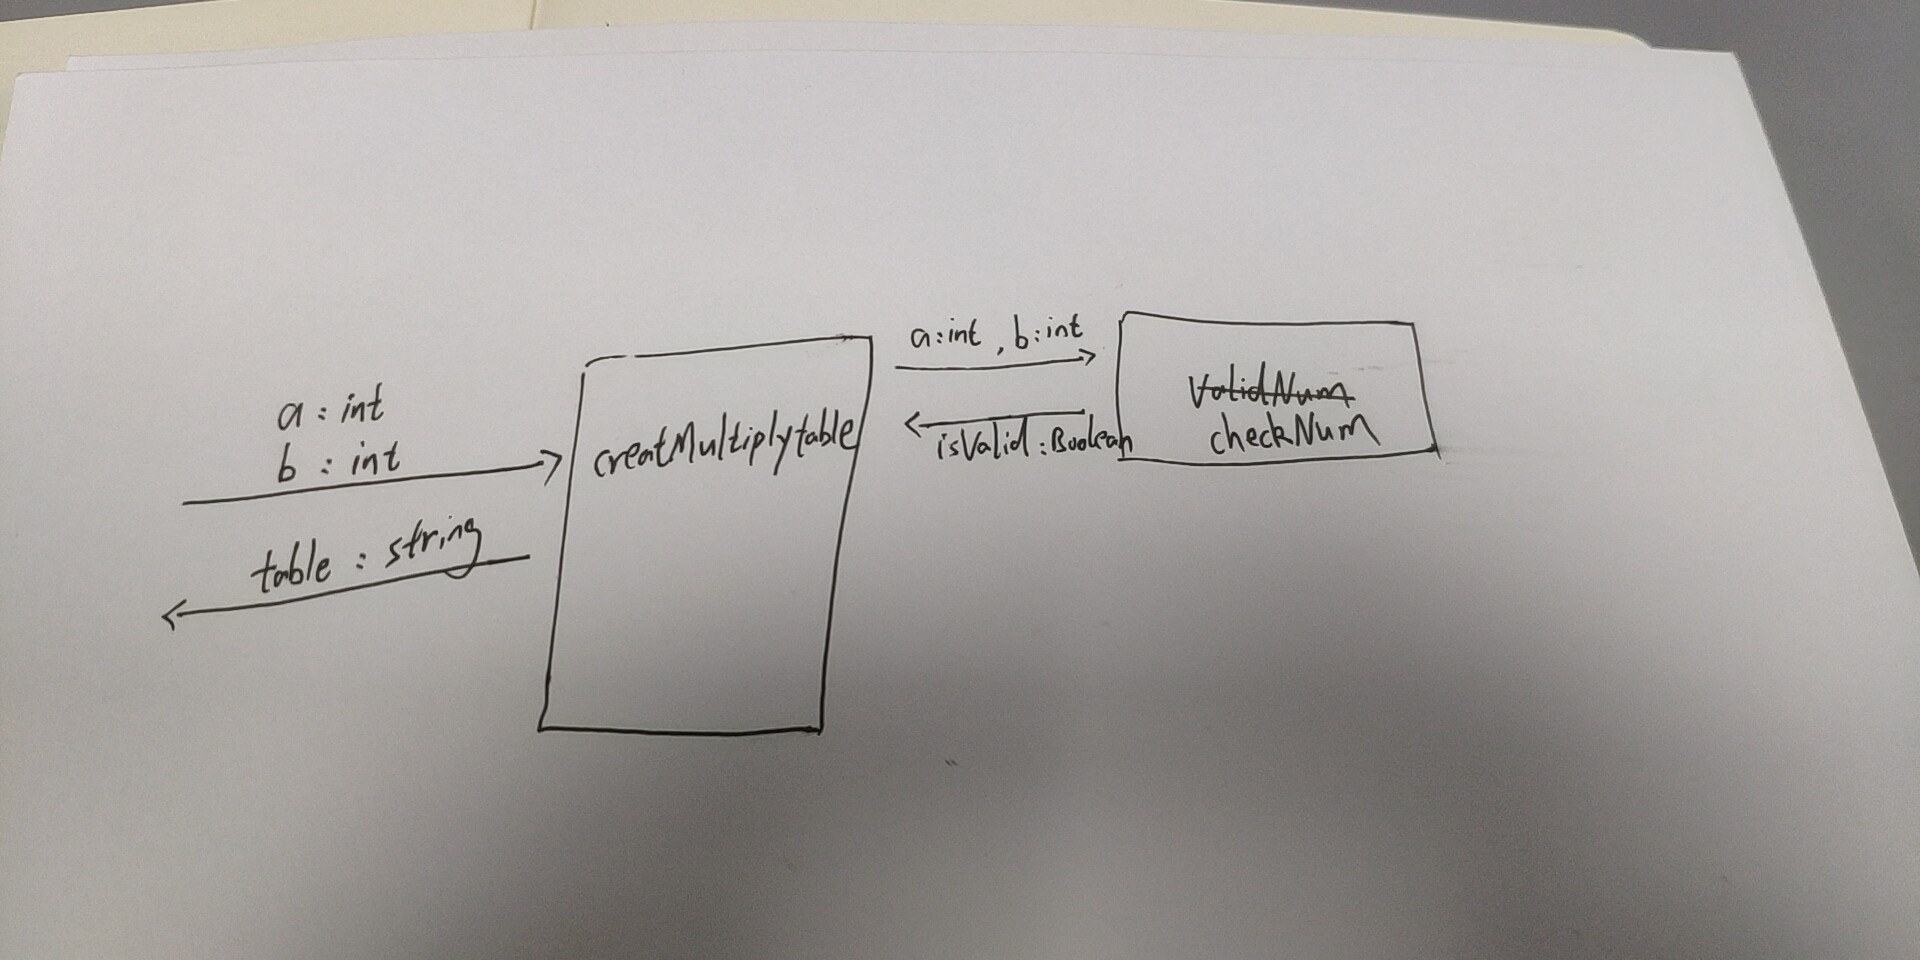 a : int
b : int
table : string
creatMultiplytable
a:int , b:int
isValid : Boolean
validNum
checkNum